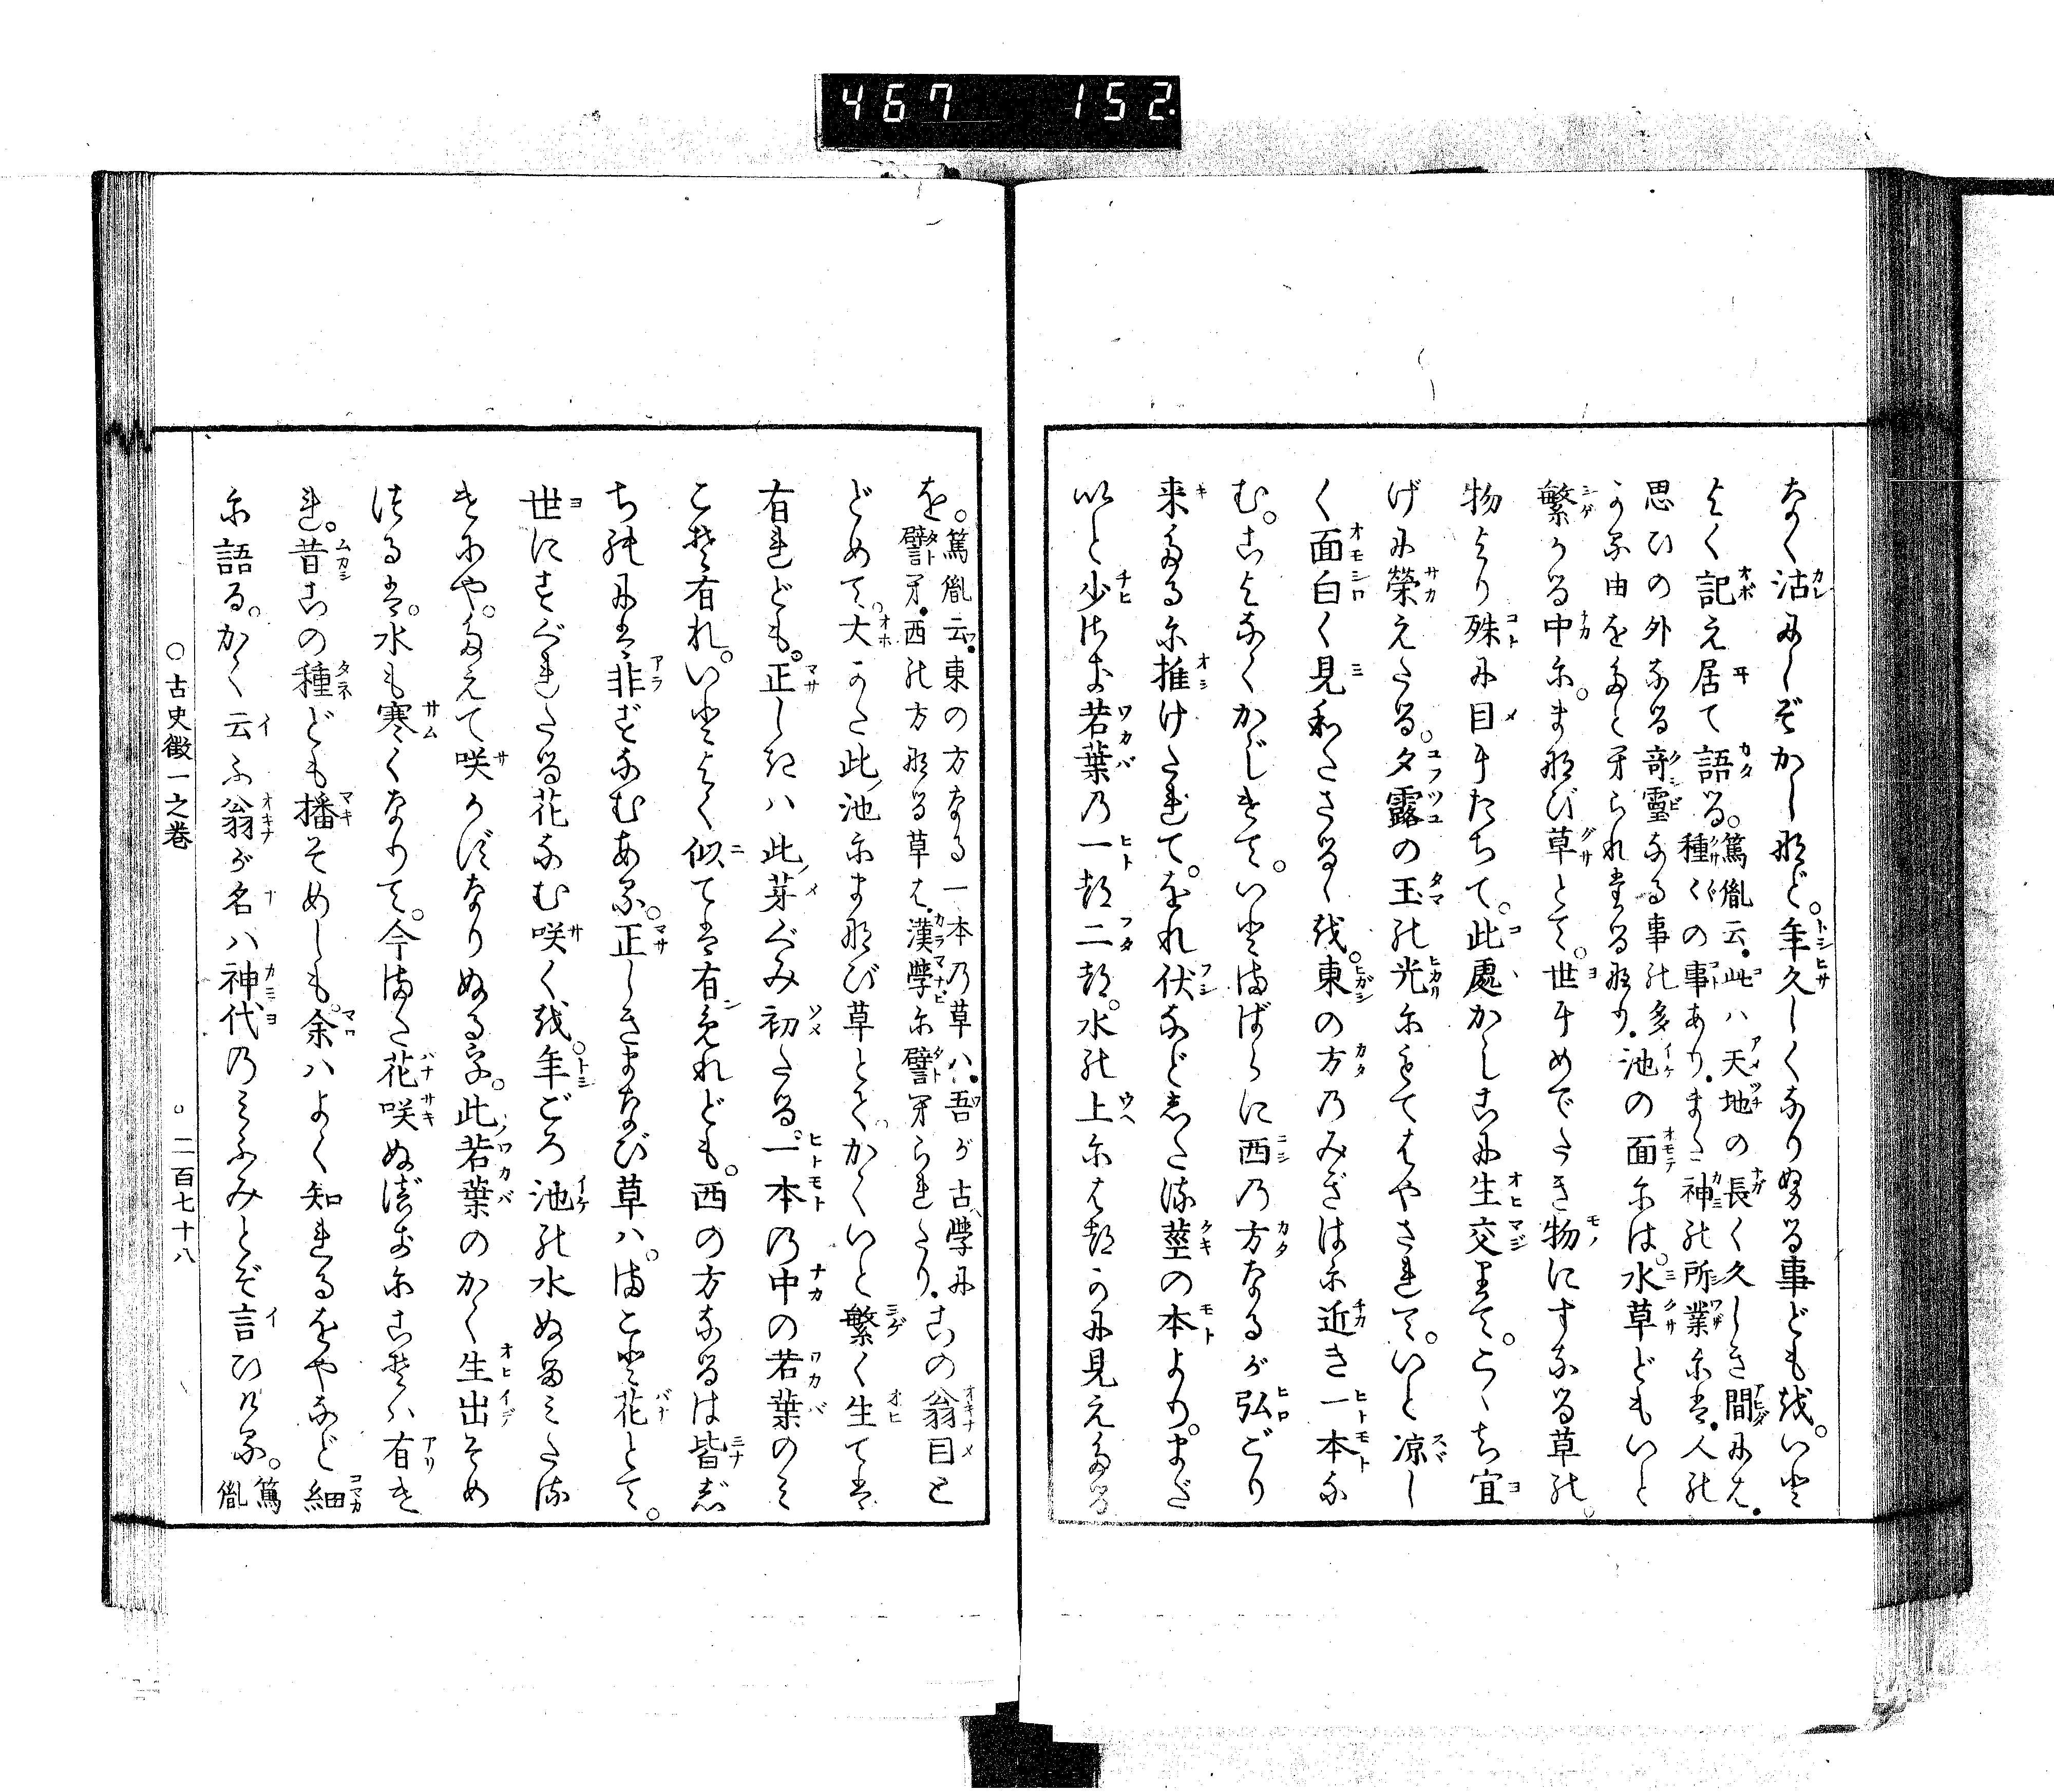 467 152
なく沽にしぞかしなど。年久しくなりぬる事ども。いと
よく記え居て語る。篤胤云。此ハ天地の長く久しき間には。
種々の事あり。また神の所業には。人の
思ひの外なる竒靈なる事の多
かる由をたとへられたるなり。池の面には。水草どもいと
繁かる中に。まなび草とて。世にめでたき物にすなる草の。
物より殊に目にたちて。此處かしこに生交りて。こゝち宜
げに榮えたる。夕露の玉の光にもてはやされて。いと凉し
く面白く見わたさるゝを。東の方のみぎはに近き一本な
む。こよなくかじけて。いとまばらに西の方なるが弘ごり
来たるに推けたれて。をれ伏などしたる莖の本より。まだ
いと少けき若葉の一ひら二ひら。水の上にはつかに見えたる
を。篤胤云。東の方なる一本の草ハ。吾が古學に
譬へ。西の方なる草は。漢學に譬へられたり。この翁目と
どめて。大かた此池にまなび草とて。かくいと繁く生ては
有れども。正しきハ此芽ぐみ初たる。一本の中の若葉のみ
こそ有れ。いとよく似ては有めれども。西の方なるは皆まこと
ちの には非ずなむある。正しきまなび草ハ。まこと花とて。
世にすぐれたる花なむ咲くを。年ごろ池の水ぬるみたる
けにや。たえて咲かずなりぬるを。此若葉のかく生出そめ
つるは。水も寒くなりて。今また花咲ぬべきにこそハ有け
れ。昔この種ども播そめしも。余ハよく知れるをやなど細
に語る。かく云ふ翁が名ハ神代のみふみとぞ言ひける。篤
胤
○古史徴一之卷
○二百七十八